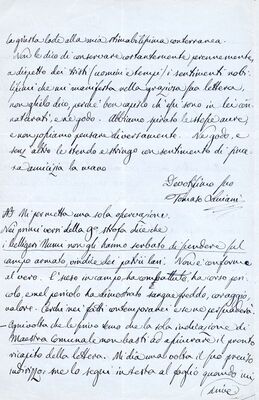 la giusta lode alla mia stimabilissima conterranea.
Non le dico di conservare costantemente, perennemente,
a dispetto dei tristi (uomini e tempi) i sentimenti nobi-
lissimi che mi manifesta nella graziosa sua lettera,
non glielo dico, perchè ben capisco ch'essi sono in lei con-
naturati, e ne godo. Abbiamo spirato le stesse aure
e non possiamo pensare diversamente. Ne godo, e
senz'altro le stendo e stringo con sentimenti di pu-
ra amicizia la mano
Devotissimo suo
Tomaso
Mi permetta una sola osservazione.
Nei primi versi della strofa dice che
i bellligeri Numi non gli hanno serbato di pendere sul
campo armato, vindice dei patrii lari. Non è conforme
al vero. Egli scese in campo, ha combattuto, ha corso peri-
colo, e nel pericolo ha dimostrato sangue freddo, coraggio,
valore. Certi nei fatti contemporanei
che le scrivo temo che la sola indicazione di
Maestra Comunale non basti ad assicurare il pronto
ricapito della lettera. Mi dia una volta il suo preciso
indirizzo; me lo segni in testa al foglio quando mi
scrive